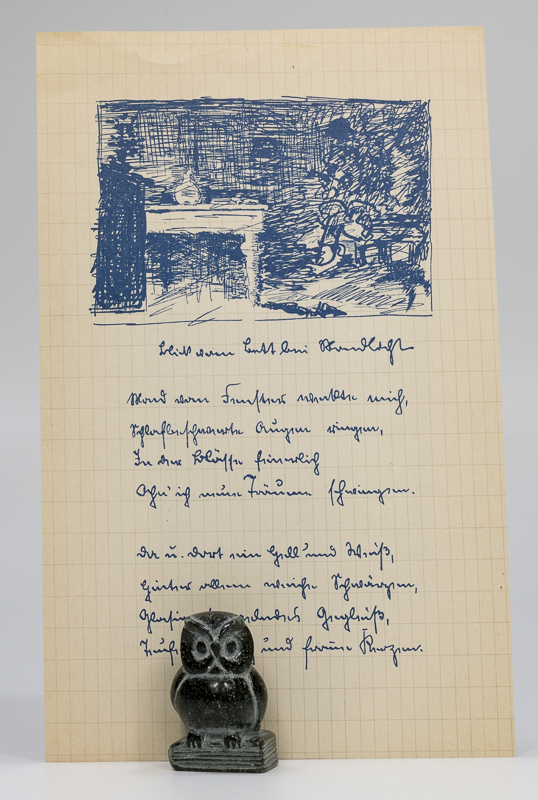 Blick vom Bett bei Mondlicht
Mond vom Fenster weckte mich,
Schlafbeschwerte Augen ringen,
In der Blässe feierlich
Seh' ich meine Träume schwingen.
Da u. dort ein Hell und Weiß,
Hinter allem weiche Schwärzen,
Gegleiß,
und Kerzen.